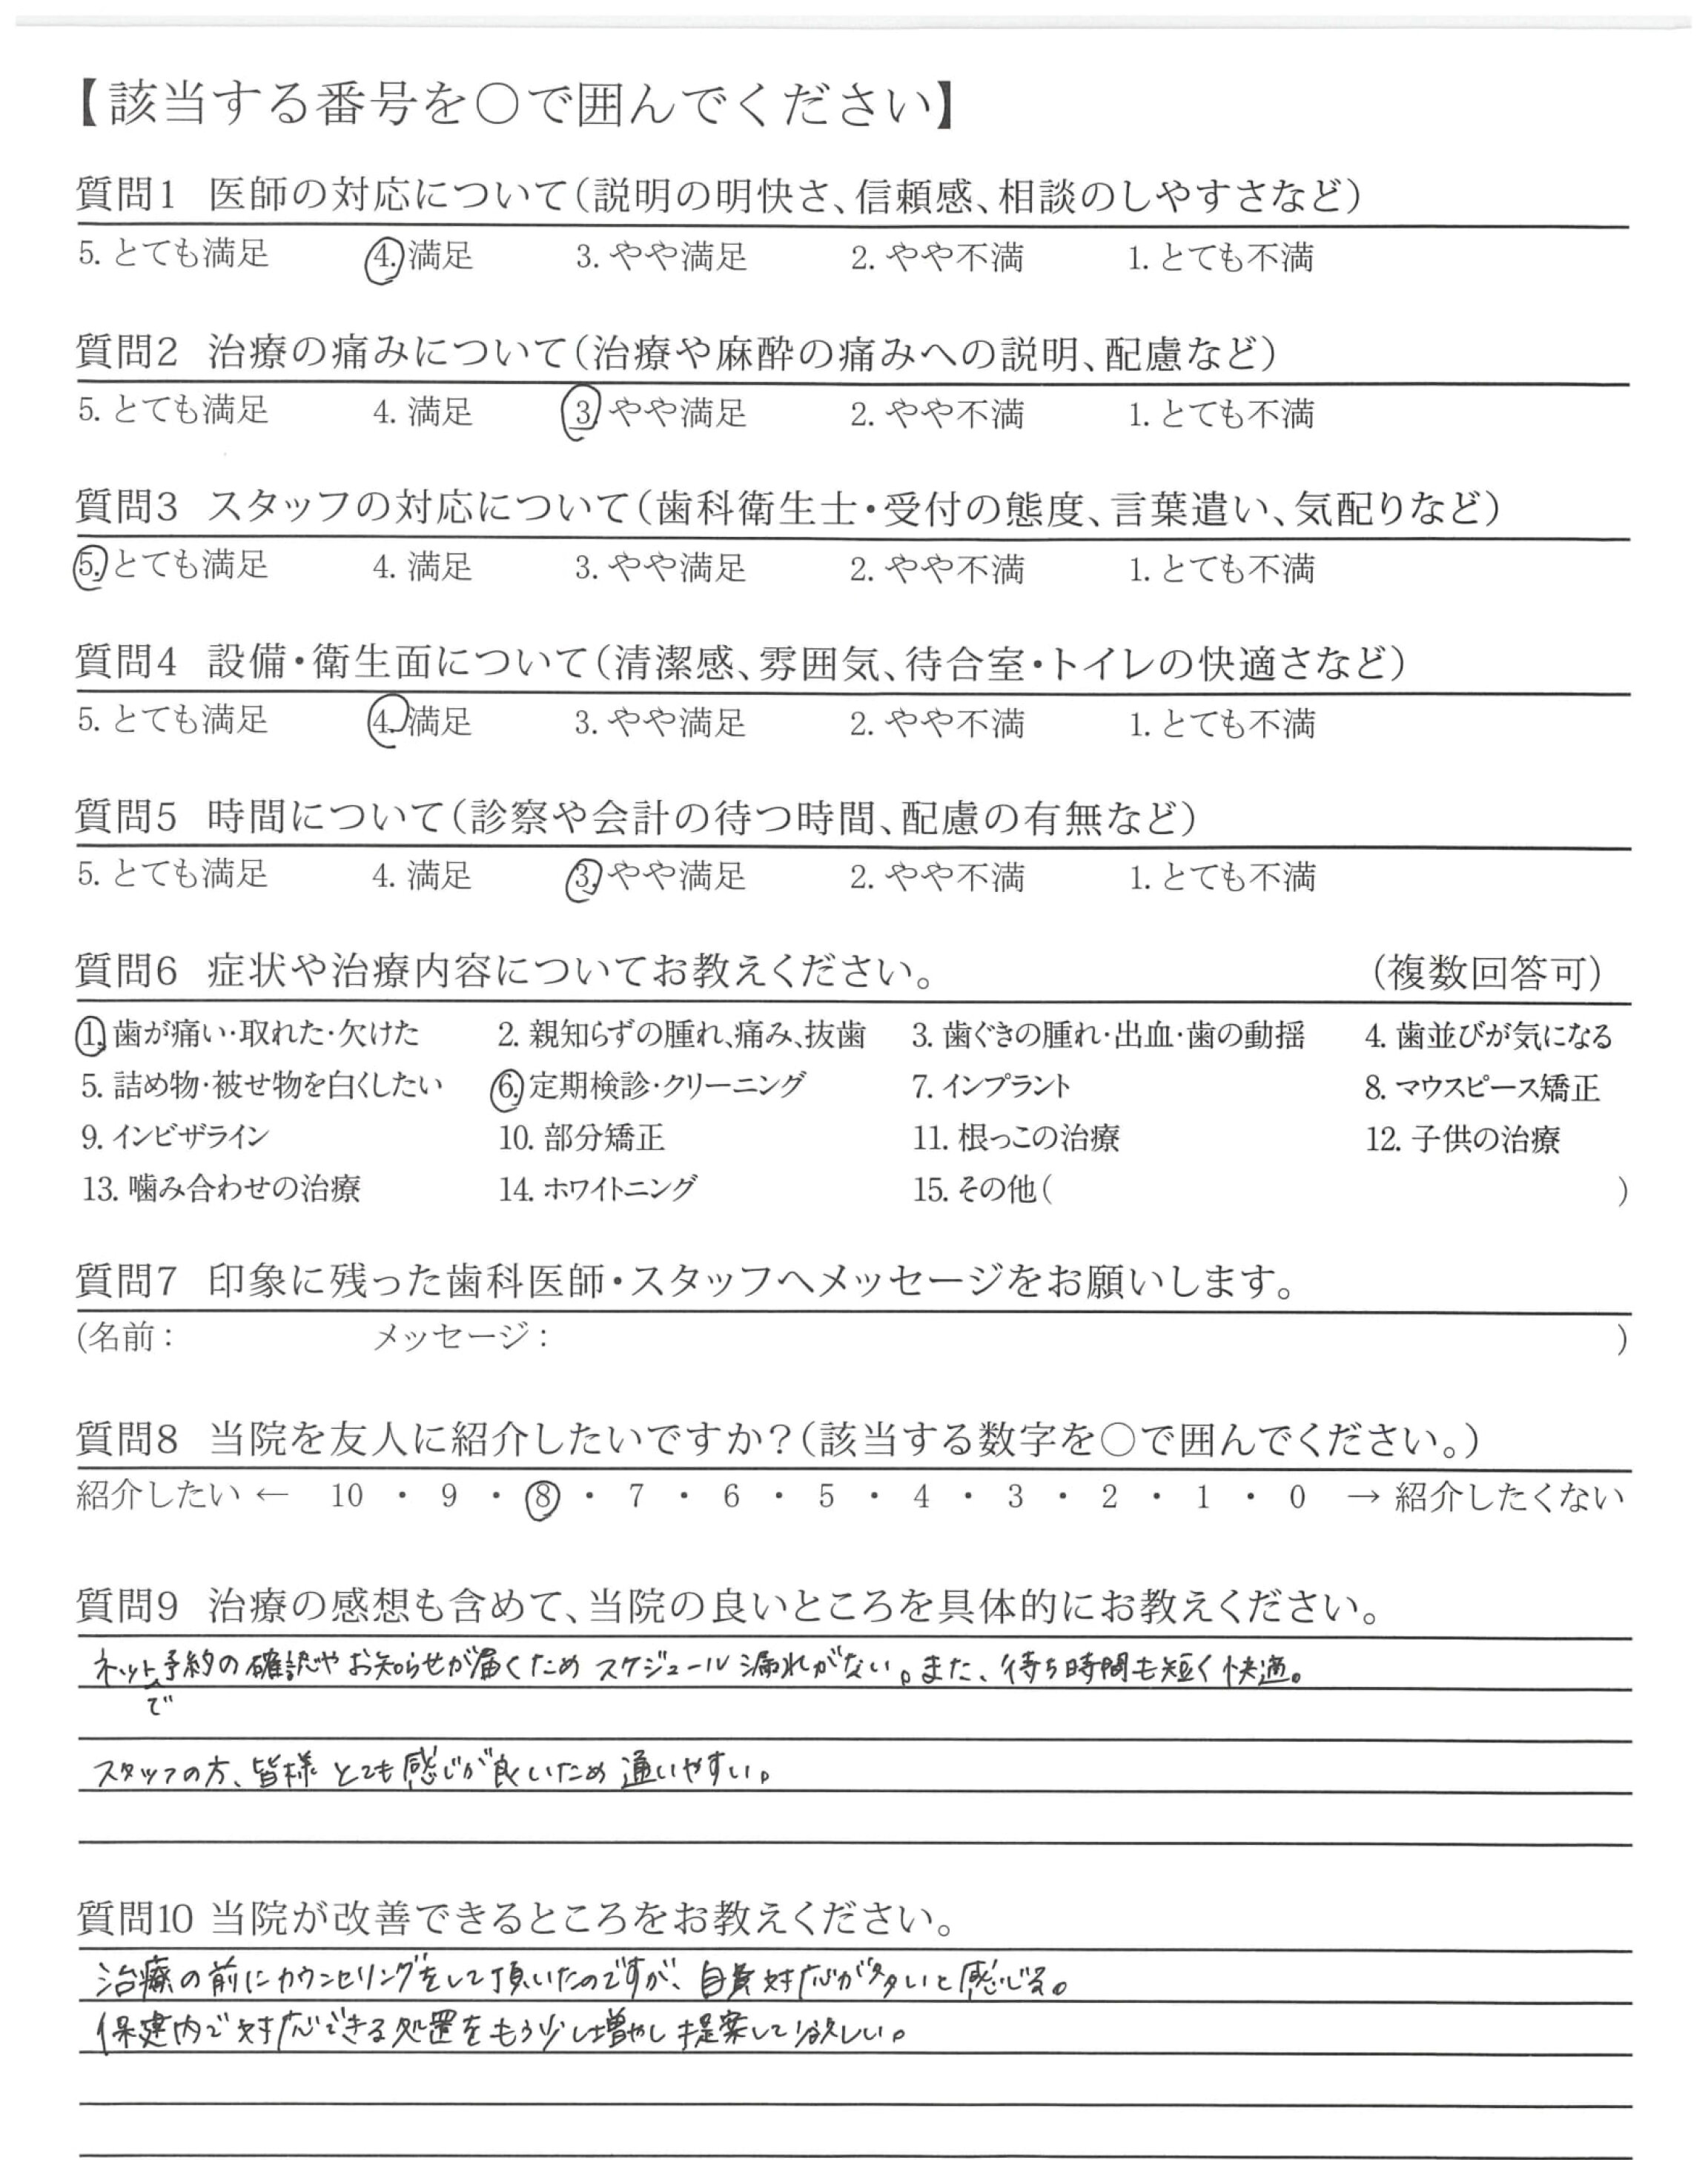 【該当する番号を〇で囲んでください】
質問1 医師の対応について(説明の明快さ、信頼感、相談のしやすさなど)
5. とても満足 4. 満足 3. やや満足 2. やや不満 1. とても不満
質問2 治療の痛みについて(治療や麻酔の痛みへの説明、配慮など)
5. とても満足 4. 満足 3. やや満足 2. やや不満 1. とても不満
質問3 スタッフの対応について(歯科衛生士・受付の態度、言葉遣い、気配りなど)
5. とても満足 4. 満足 3. やや満足 2. やや不満 1. とても不満
質問4 設備・衛生面について(清潔感、雰囲気、待合室・トイレの快適さなど)
5. とても満足 4. 満足 3. やや満足 2. やや不満 1. とても不満
質問5 時間について(診察や会計の待つ時間、配慮の有無など)
5. とても満足 4. 満足 3. やや満足 2. やや不満 1. とても不満
質問6 症状や治療内容についてお教えください。 (複数回答可)
1. 歯が痛い・取れた・欠けた 2. 親知らずの腫れ、痛み、抜歯 3. 歯ぐきの腫れ・出血・歯の動揺 4. 歯並びが気になる
5. 詰め物・被せ物を白くしたい 6. 定期検診・クリーニング 7. インプラント 8. マウスピース矯正
9. インビザライン 10. 部分矯正 11. 根っこの治療 12. 子供の治療
13. 噛み合わせの治療 14. ホワイトニング 15. その他( )
質問7 印象に残った歯科医師・スタッフへメッセージをお願いします。
(名前: メッセージ: )
質問8 当院を友人に紹介したいですか?(該当する数字を〇で囲んでください。)
紹介したい ← 10 ・ 9 ・ 8 ・ 7 ・ 6 ・ 5 ・ 4 ・ 3 ・ 2 ・ 1 ・ 0 → 紹介したくない
質問9 治療の感想も含めて、当院の良いところを具体的にお教えください。
ネットで予約の確認やお知らせが届くためスケジュール漏れがない。また、待ち時間も短く快適。
スタッフの方、皆様とても感じが良いため通いやすい。
質問10 当院が改善できるところをお教えください。
治療の前にカウンセリングをして頂いたのですが、自費対応が多いと感じる。
保建内で対応できる処置をもう少し増やし提案して欲しい。